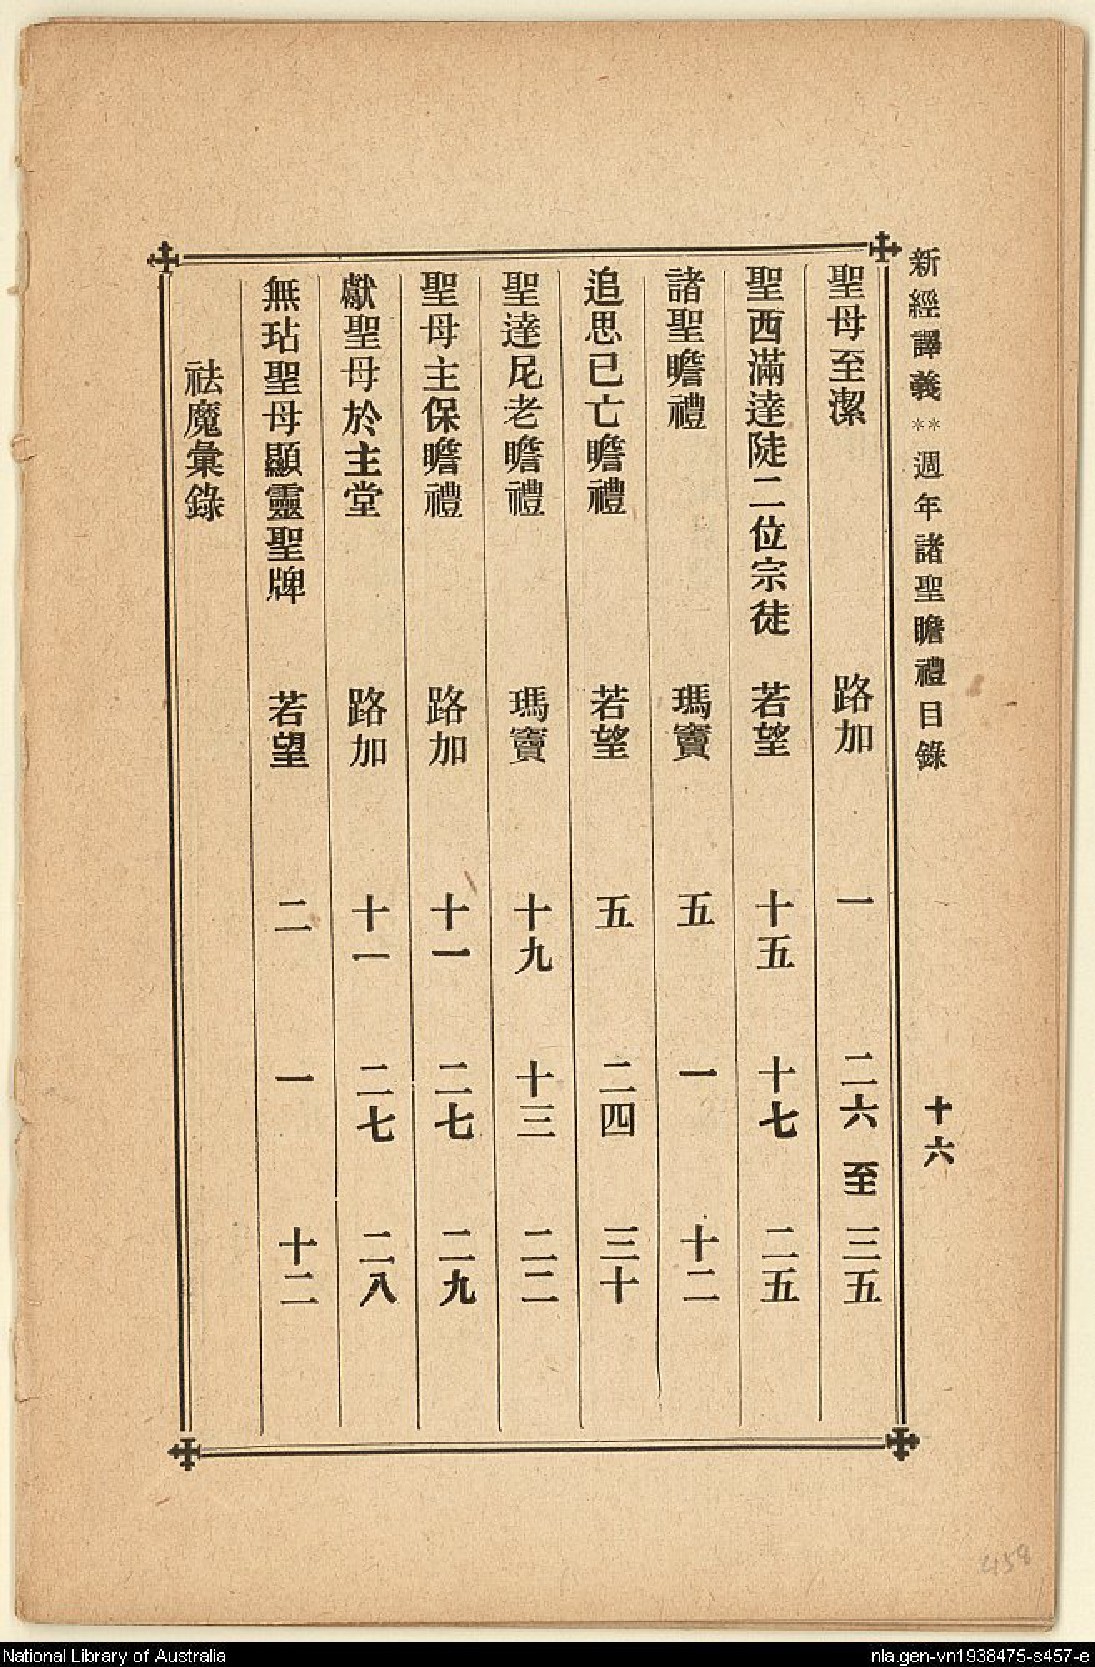 新經譯義**週年諸聖瞻禮目錄 十六
聖母至潔 路加 一 二六至三五
聖西滿達陡二位宗徒 若望 十五 十七 二五
諸聖瞻禮 瑪竇 五 一 十二
追思已亡瞻禮 若望 五 二四 三十
聖達尼老瞻禮 瑪竇 十九 十三 二二
聖母主保瞻禮 路加 十一 二七 二九
獻聖母於主堂 路加 十一 二七 二八
無玷聖母顯靈聖牌 若望 二 一 十二
祛魔彙錄
458
National Library of Australia
nla.gen-vn1938475-s457-e